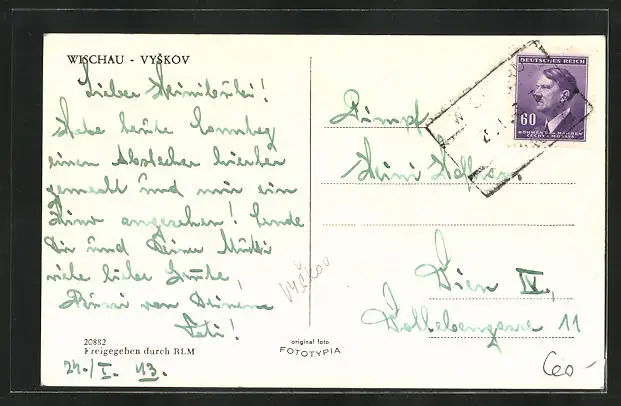 WISCHAU - VYŠKOV
Lieber Heinibubi!
Habe heute Sonntag
einen Abstecher hierher
gemacht und mir ein
Kino angesehen! Sende
Dir und Deiner Mutti
viele liebe Grüße,
Bussi von Deinem
Vati!
20882
Freigegeben durch RLM
24./I. 43.
original foto
FOTOTYPIA
VYŠKOV
DEUTSCHES REICH
60
BÖHMEN U. MÄHREN
ČECHY A MORAVA
Heini
Wien IV.,
11